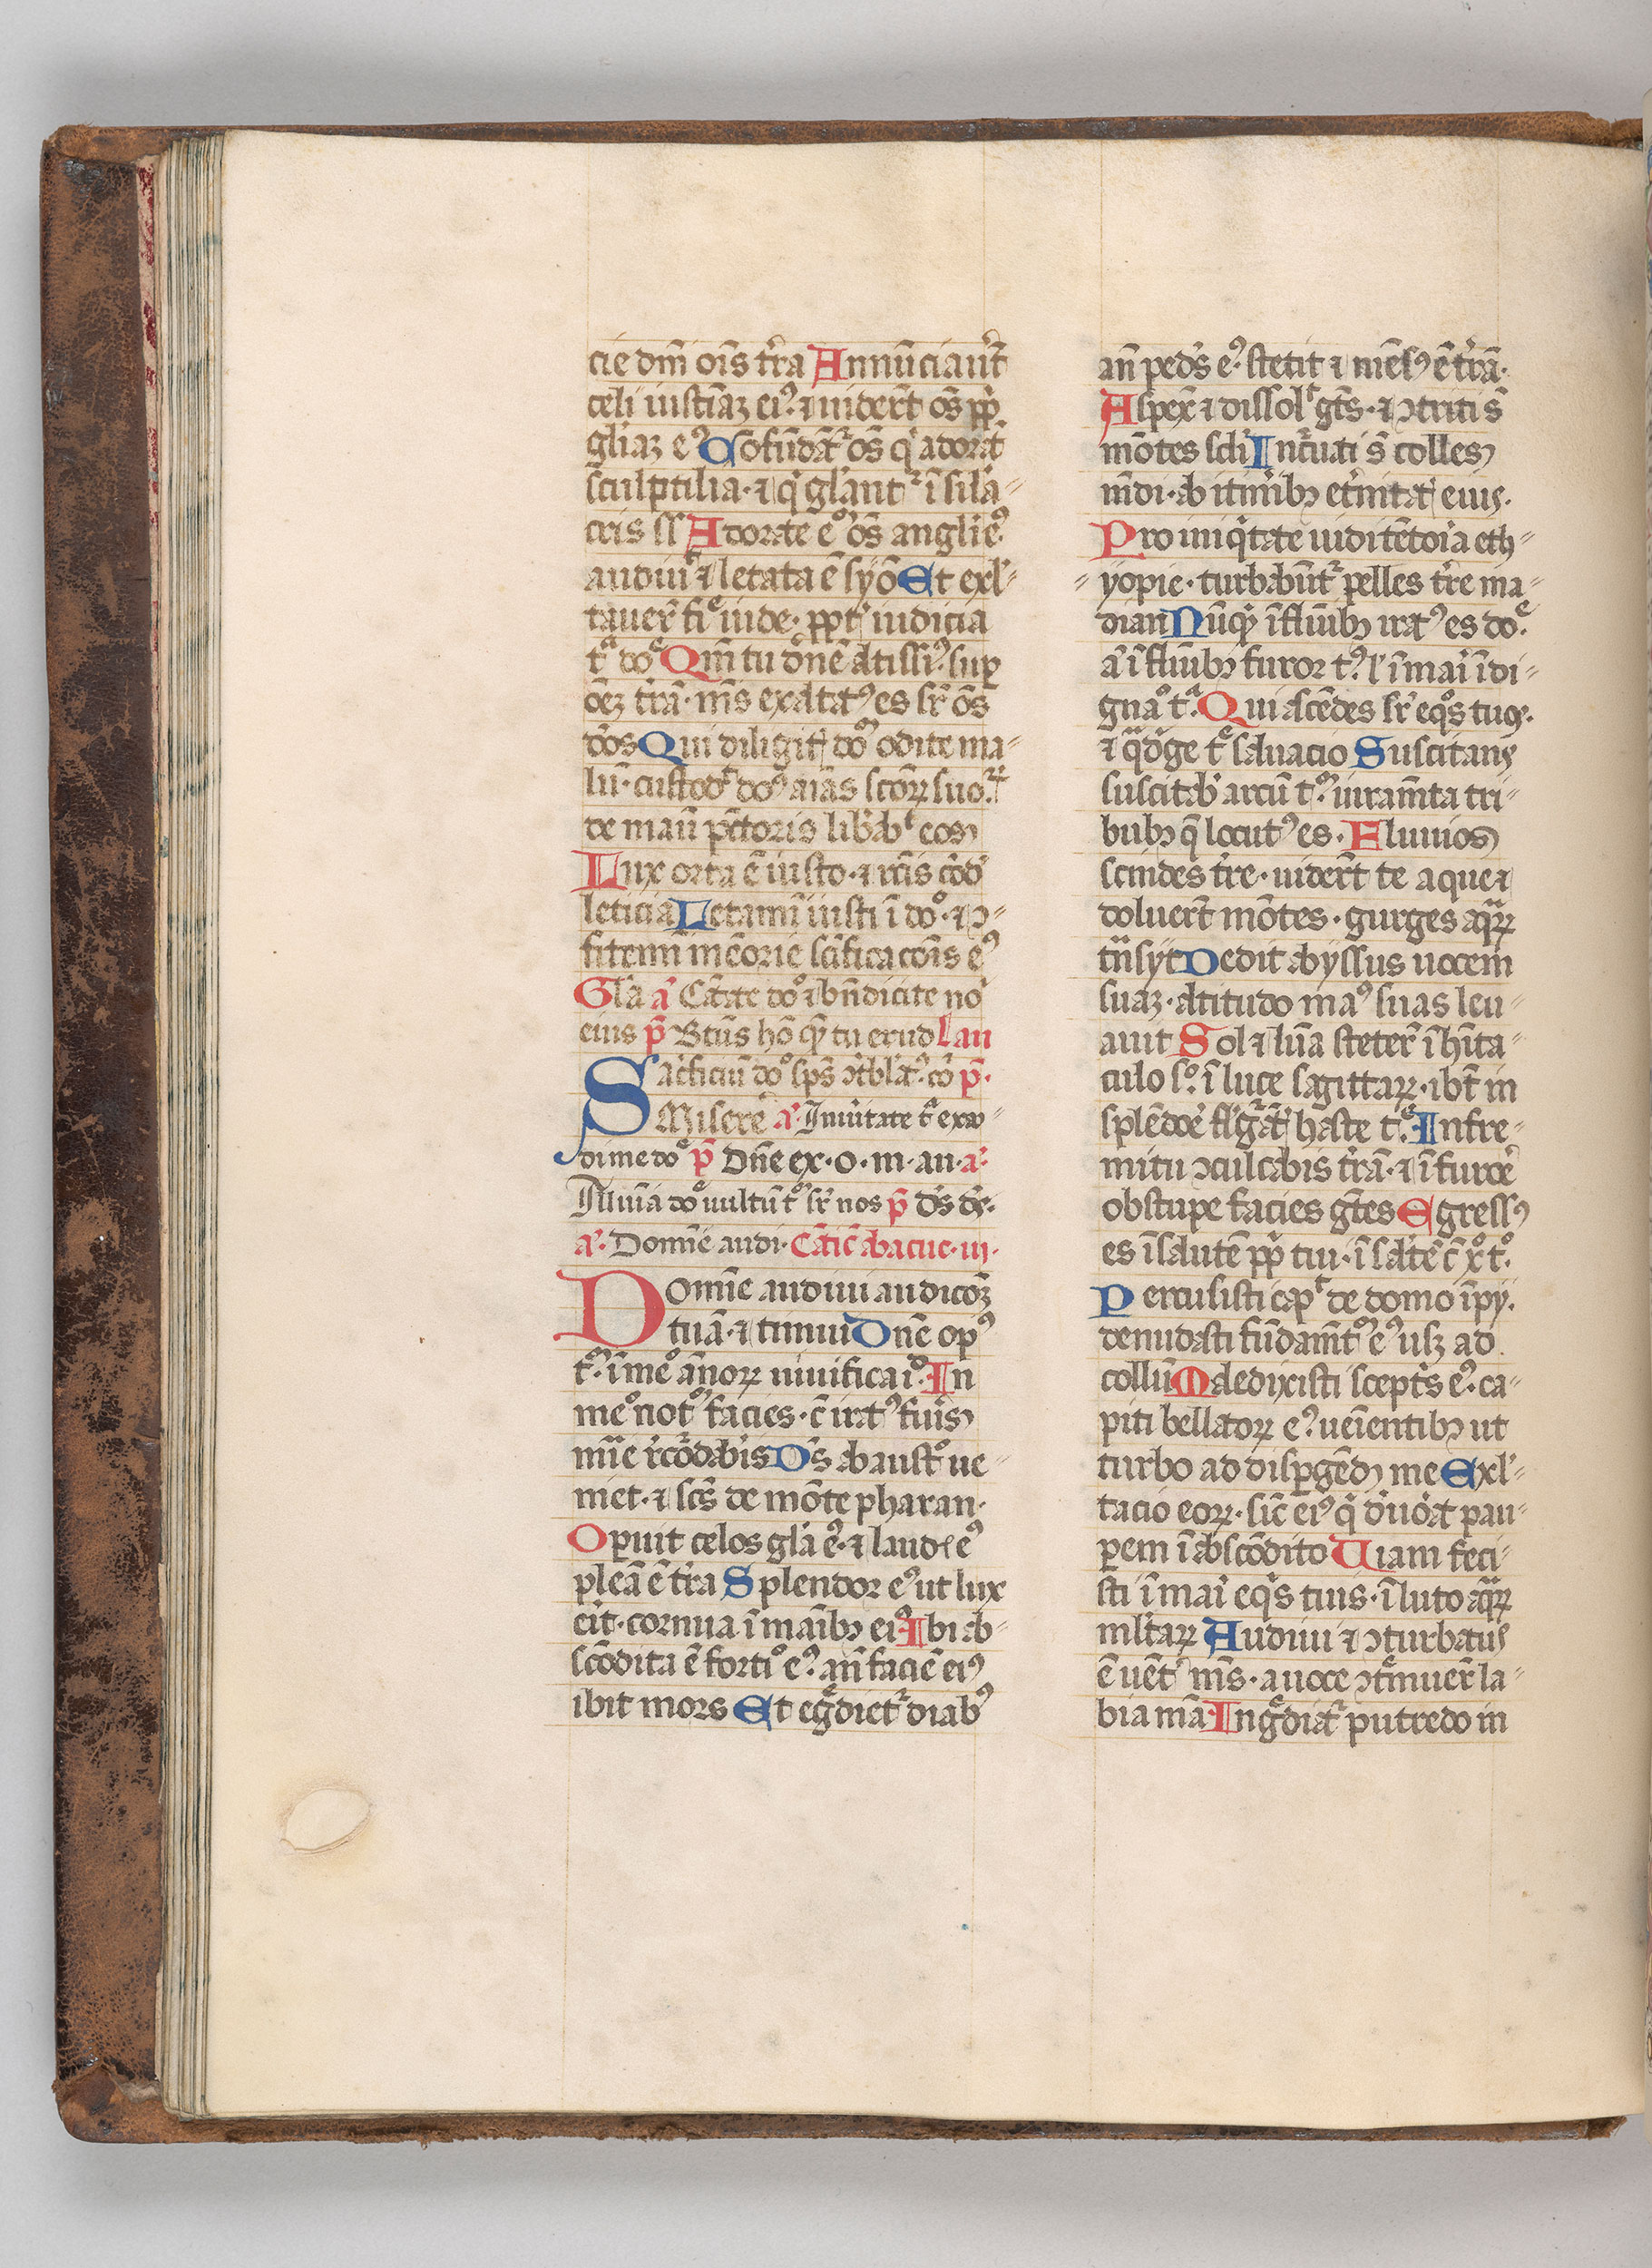 cie dm̄ ois t̄ra Annūciauer̄t
celi iusticiaʒ eiꝰ ⁊ uider̄t os̄ pp̄
gl̄iaz eꝰ Cofūdāt᷑ os̄ q̇ adorāt
sculptilia · ⁊ q̇ gl̄ant᷑ ī sila⸗
cris s̄s̄ Adorate eͦ os̄ angli eꝰ
audiuit ⁊ letata ē syō Et exl⸗
tauer̄ fiͤ iude · ꝓpt̄ iudicia
tᵃ doͤ Qm̄ tu dn̄e altissiꝰ suꝑ
oēʒ t̄rā · nīs exaltatꝰ es sr̄ os̄
dōs Qui diligit̄ doͫ odite ma⸗
lū · custodᵗ doꝰ aias scōꝝ suoꝝ
de manū pc̄toris lib̄abᵗ eos
Lux orta ē iusto · ⁊ rc̄is cōd̄
leticia Letamī iusti ī doͦ · ⁊ ↄ⸗
fitemī mēorie sc̄ificacōis eꝰ
Gl̄a a̅ Cātate doͦ ⁊ bn̄dicite no᷑
eius p̄ Bt̄us hō qͫ tu erud Lau
Sacficiū doͦ sps̄ ↄtbl̄atꝰ · cō p̄ ·
Misere a̅ · In ūitate tᵃ exau⸗
di me doͤ p̄ Dn̄e ex · o · m · an · a̅ ·
Illuīa doͤ uultū tͫ sr̄ nos p̄ Ds̄ ds̄ ·
a̅ · Domīe audi · Cātic̄ abacuc · iij ·
Domīe audiui audicōʒ
tuā · ⁊ timui Dn̄e opꝰ
tͫ · ī meͦ ānoꝝ uiuifica iͩ · In
meͦ notͫ facies · c̄ iratꝰ fuis̄
mīe rc̄ōdabis Ds̄ ab austͦ ue⸗
niet · ⁊ scs̄ de mōte pharan ·
Oꝑuit celos gl̄a eꝰ · ⁊ laude eꝰ
plea ē t̄ra Splendor eꝰ ut lux
erit · cornua ī maībꝫ eiꝰ Ibi ab⸗
scōdita ē fortiͦ eꝰ · an̄ faciē eiꝰ
ibit mors Et egᵉdiet᷑ diabꝰ
an̄ pedes eꝰ · stetit ⁊ mēsꝰ ē t̄rā ·
Aspex̄ ⁊ dissolᵗ gt̄es · ⁊ ↄtriti s̄
mōtes scl̄i Incͬuati s̄ colles
mūdi · ab itin̄ibꝫ et̄nitat̄ eius ·
Pro iniq̇tate uidi tētoia eth⸗
⸗yopie · turbabūt᷑ pelles t̄re ma⸗
dian Nūqͩ ī flūibꝫ iratꝰ es doͤ ·
a̅ ī flūibꝫ furor tꝰ · l ̄ī mai īdi⸗
gnaͦ tᵃ · Qui ascēdes sr̄ eqͦs tuos ·
⁊ qᵃdge tᵉ saluacio Suscitans
suscitab̄ arcū tͫ · iuram̄ta tri⸗
bubꝫ q̄ locutꝰ es · Fluuios
scindes t̄re · uider̄t te aque ⁊
doluer̄t mōtes · gurges aqᵃꝝ
tn̄syt Dedit abyssus uocem
suaʒ · altitudo maꝰ suas leu⸗
auit Sol ⁊ lūa steter̄ ī hita⸗
culo sͦ · ī luce sagittaꝝ · ibt̄ in
splēdoe flgᵃt̄ haste tᵉ · In fre⸗
mitu ↄculcabis t̄rā · ⁊ ī furoe
obstupefacies gt̄es Egressꝰ
es ī salutē pp̄ tui · ī sal̄tē c̄ xͦ tͦ ·
Percussisti capᵗ de domo īpij ·
denudasti fūdam̄tͫ eꝰ usqʒ ad
collū Maledixisti sceptis eꝰ · ca⸗
piti bellatoꝝ eꝰ · ueīentibꝫ ut
turbo ad disꝑgēdͫ me Exl⸗
tacio eoꝝ · sic̄ eiꝰ q̇ d̄uoat pau⸗
ꝑem ī abscōdito Uiam feci⸗
sti ī mai eq̇s tuis · ī luto aqᵃꝝ
ml̄taꝝ Audiui ⁊ ↄturbatus
ē uēt̄ mīs · a uoce ↄtͤmuer̄ la⸗
bia mā · Ingᵉdiat᷑ putredo in